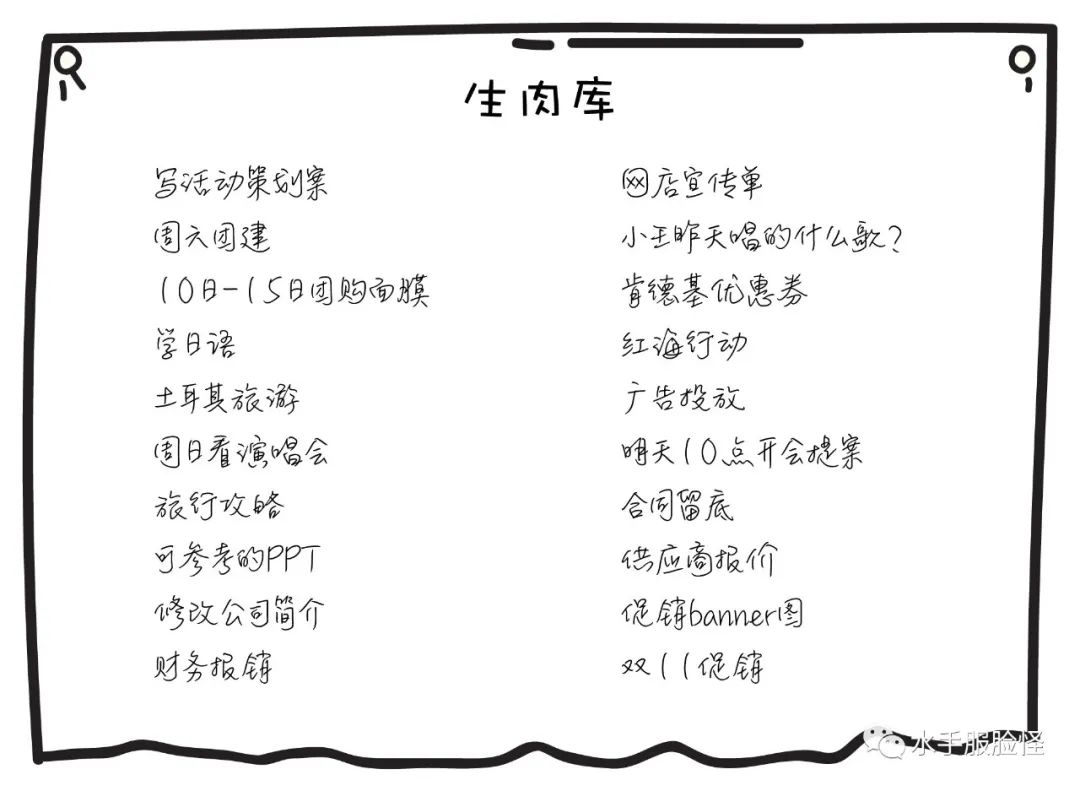 生肉库
写活动策划案
周六团建
10日-15日团购面膜
学日语
土耳其旅游
周日看演唱会
旅行攻略
可参考的PPT
修改公司简介
财务报销
网店宣传单
小王昨天唱的什么歌?
肯德基优惠券
红海行动
广告投放
明天10点开会提案
合同留底
供应商报价
促销banner图
双11促销
水手服脸怪